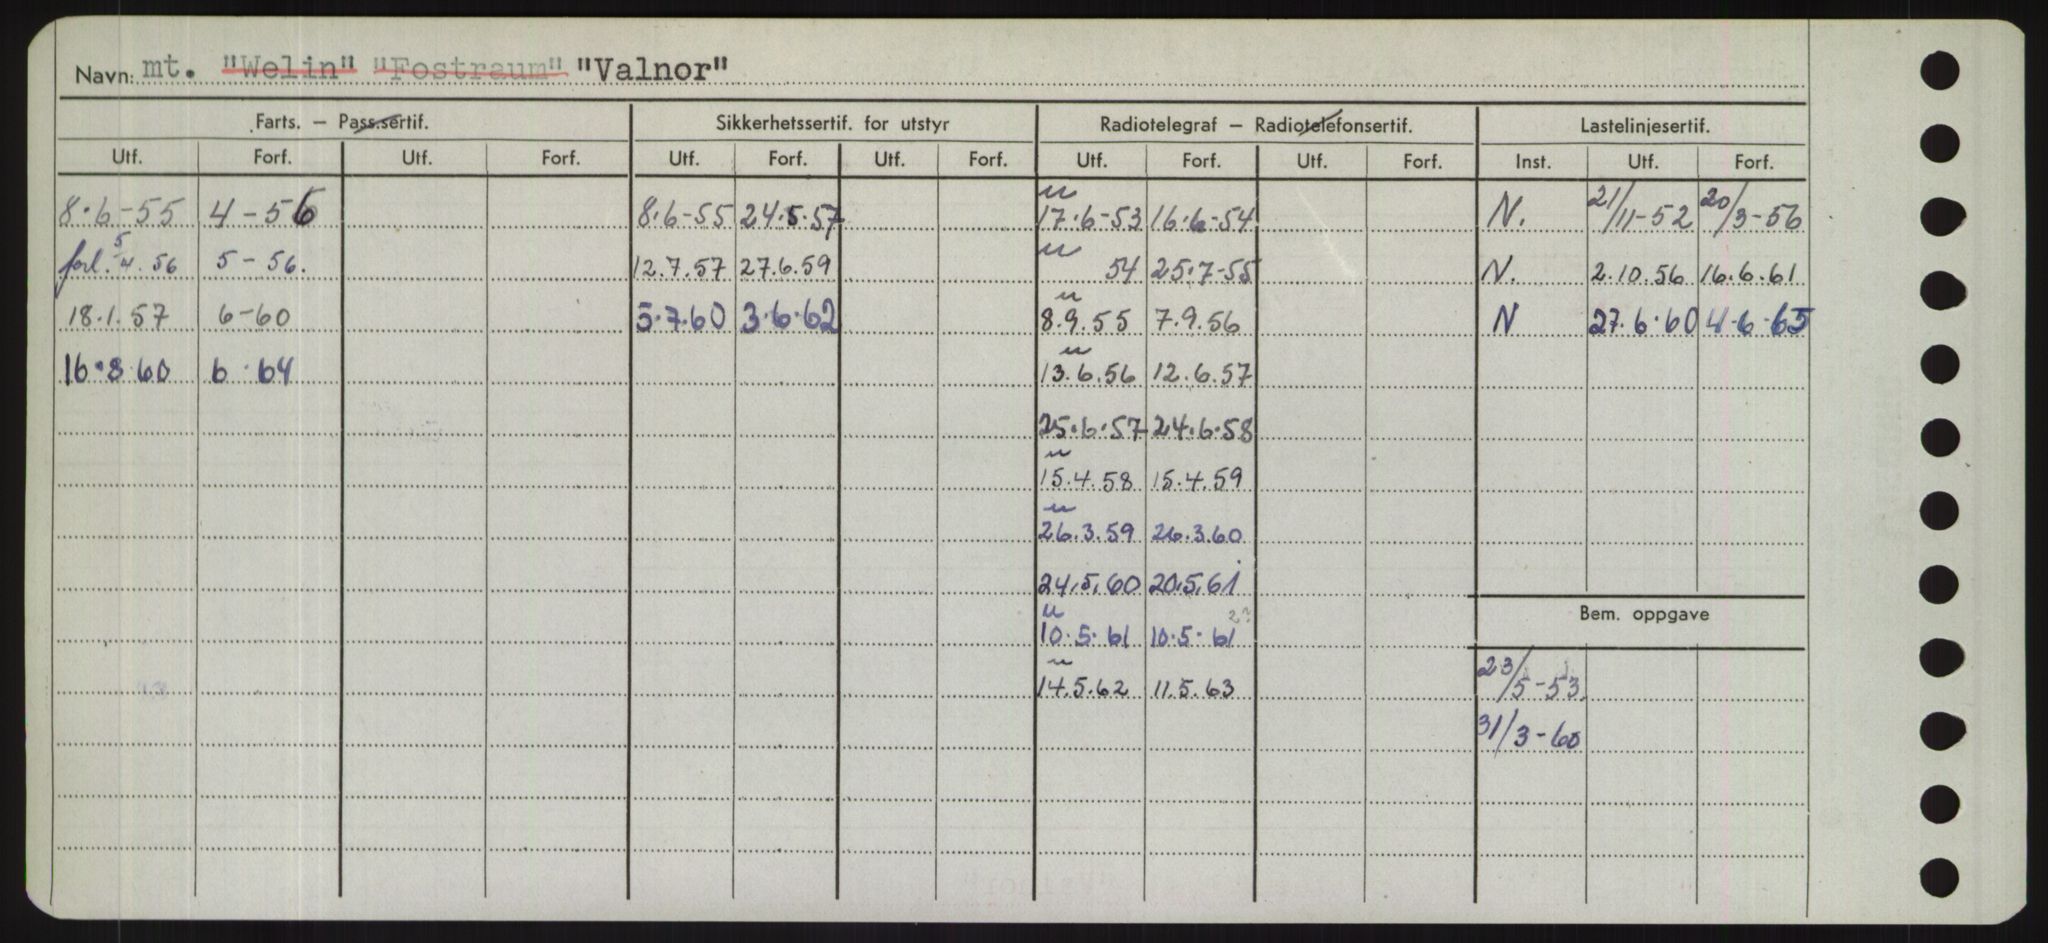 Navn: mt. "Welin" "Fostraum" "Valnor"
Farts. – Pass.sertif. Sikkerhetssertif. for utstyr Radiotelegraf – Radiotelefonsertif. Lastelinjesertif.
Utf. Forf. Utf. Forf. Utf. Forf. Utf. Forf. Utf. Forf. Utf. Forf. Inst. Utf. Forf.
8.6-55 4-56 8.6-55 24.5.57 u 17.6-53 16.6-54 N. 21/11-52 20/3-56
forl. 5/4.56 5-56. 12.7.57 27.6.59 u 54 25.7-55 N. 2.10.56 16.6.61
18.1.57 6-60 5.7.60 3.6.62 u 8.9.55 7.9.56 N 27.6.60 4.6-65
16.8.60 6.64 u 13.6.56 12.6.57
25.6.57 24.6.58
u 15.4.58 15.4.59
u 26.3.59 26.3.60
24.5.60 20.5.61
Bem. oppgave
u 10.5.61 10.5.61 2?
u 14.5.62 11.5.63 23/5-53
31/3-60